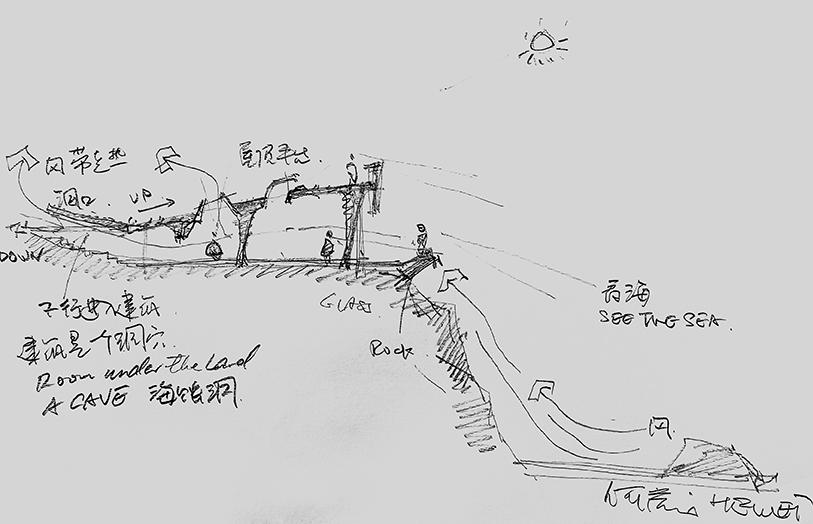 风带走热
洞口 UP
屋顶平台
DOWN
下行进入建筑
建筑是个洞穴
Room under the Land
A CAVE 海蚀洞
GLASS
ROCK
看海
SEE THE SEA.
风